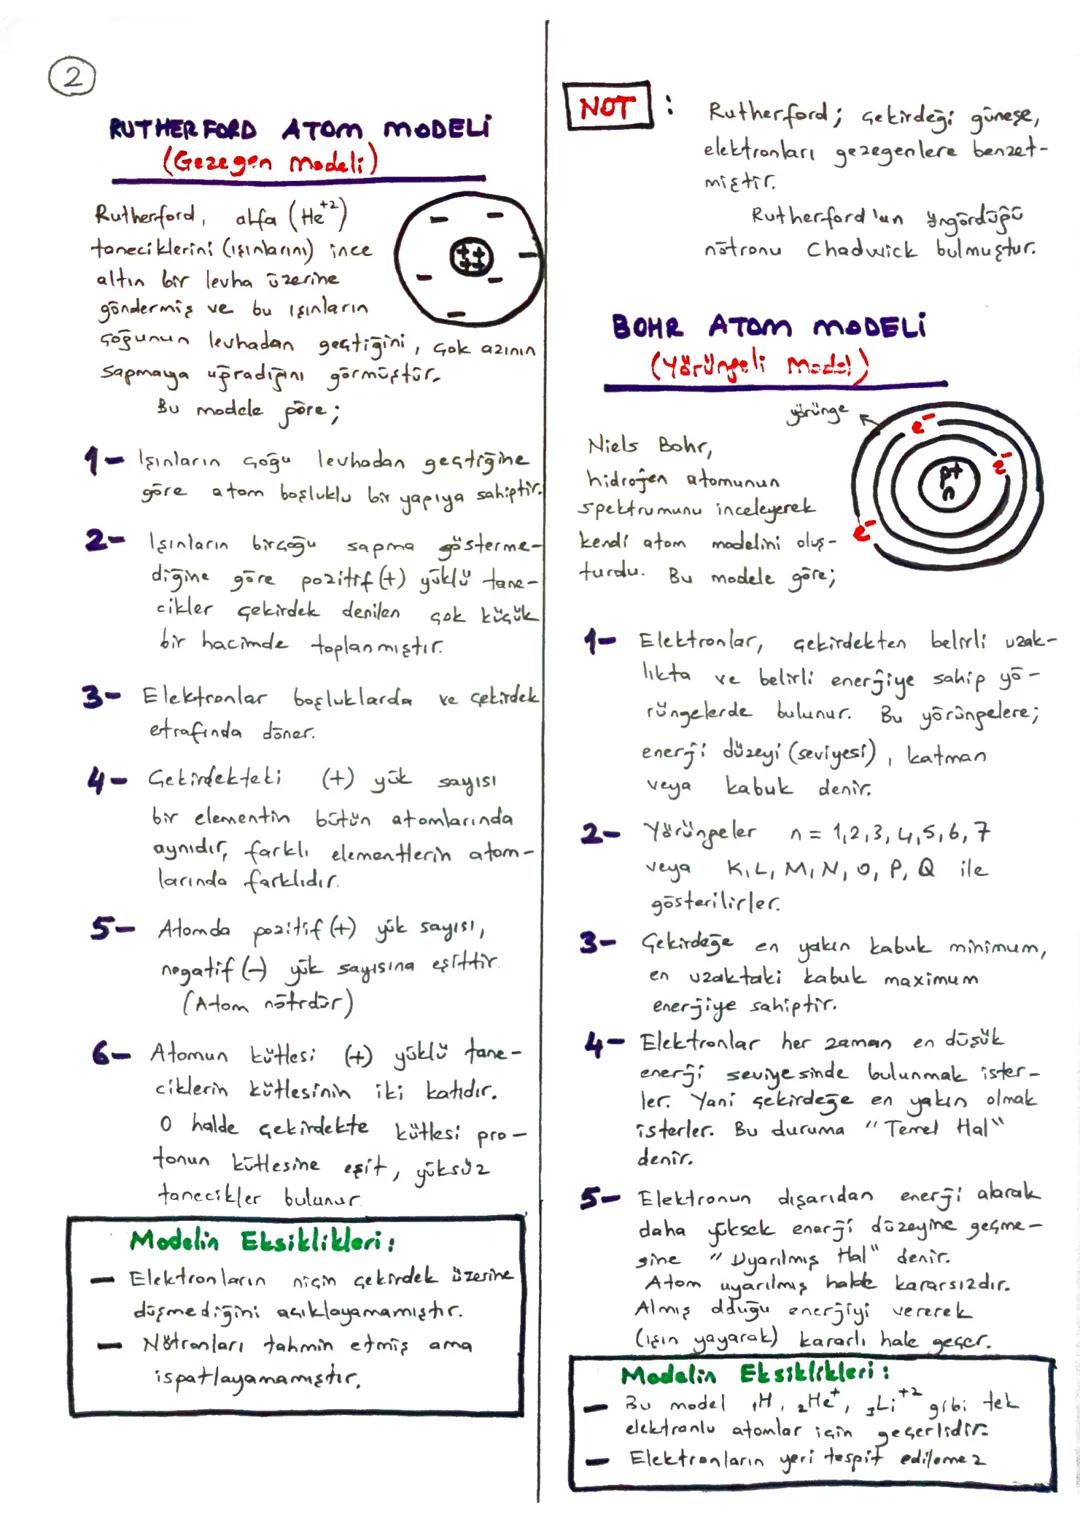 2
RUTHERFORD ATOM MODELİ
(Gezegen Modeli)
Rutherford, alfa (He+2)
taneciklerini (ışınlarını) ince
altın bir levha üzerine
göndermiş ve bu ışınların
çoğunun levhadan geçtiğini, çok azının
sapmaya uğradığını görmüştür.
Bu modele göre;
1- Işınların çoğu levhadan geçtiğine
göre atom boşluklu bir yapıya sahiptir.
2- Işınların birçoğu sapma gösterme-
diğine göre pozitif (+) yüklü tane-
cikler çekirdek denilen çok küçük
bir hacimde toplanmıştır.
3- Elektronlar boşluklarda ve çekirdek
etrafında döner.
4- Çekirdekteki (+) yük sayısı
bir elementin bütün atomlarında
aynıdır, farklı elementlerin atom-
larında farklıdır.
5- Atomda pozitif (+) yük sayısı,
negatif (-) yük sayısına eşittir.
(Atom nötrdür)
6- Atomun kütlesi (+) yüklü tane-
ciklerin kütlesinin iki katıdır.
O halde çekirdekte kütlesi pro-
tonun kütlesine eşit, yüksüz
tanecikler bulunur
Modelin Eksiklikleri:
- Elektronların niçin çekirdek üzerine
düşmediğini açıklayamamıştır.
- Nötronları tahmin etmiş ama
ispatlayamamıştır.
NOT : Rutherford; çekirdeği güneşe,
elektronları gezegenlere benzet-
miştir.
Rutherford'un öngördüğü
nötronu Chadwick bulmuştur.
BOHR ATOM MODELİ
(Yörüngeli Model)
yörünge
e-
e-
e-
p+
n
Niels Bohr,
hidrojen atomunun
spektrumunu inceleyerek
kendi atom modelini oluş-
turdu. Bu modele göre;
1- Elektronlar, çekirdekten belirli uzak-
lıkta ve belirli enerjiye sahip yö-
rüngelerde bulunur. Bu yörüngelere;
enerji düzeyi (seviyesi), katman
veya kabuk denir.
2- Yörüngeler n = 1,2,3,4,5,6,7
veya K, L, M, N, O, P, Q ile
gösterilirler.
3- Çekirdeğe en yakın kabuk minimum,
en uzaktaki kabuk maximum
enerjiye sahiptir.
4- Elektronlar her zaman en düşük
enerji seviyesinde bulunmak ister-
ler. Yani çekirdeğe en yakın olmak
isterler. Bu duruma "Temel Hal"
denir.
5- Elektronun dışarıdan enerji alarak
daha yüksek enerji düzeyine geçme-
sine "Uyarılmış Hal" denir.
Atom uyarılmış halde kararsızdır.
Almış olduğu enerjiyi vererek
(ışın yayarak) kararlı hale geçer.
Modelin Eksiklikleri:
- Bu model 1H, 2He+, 3Li+2 gibi tek
elektronlu atomlar için geçerlidir.
- Elektronların yeri tespit edilemez